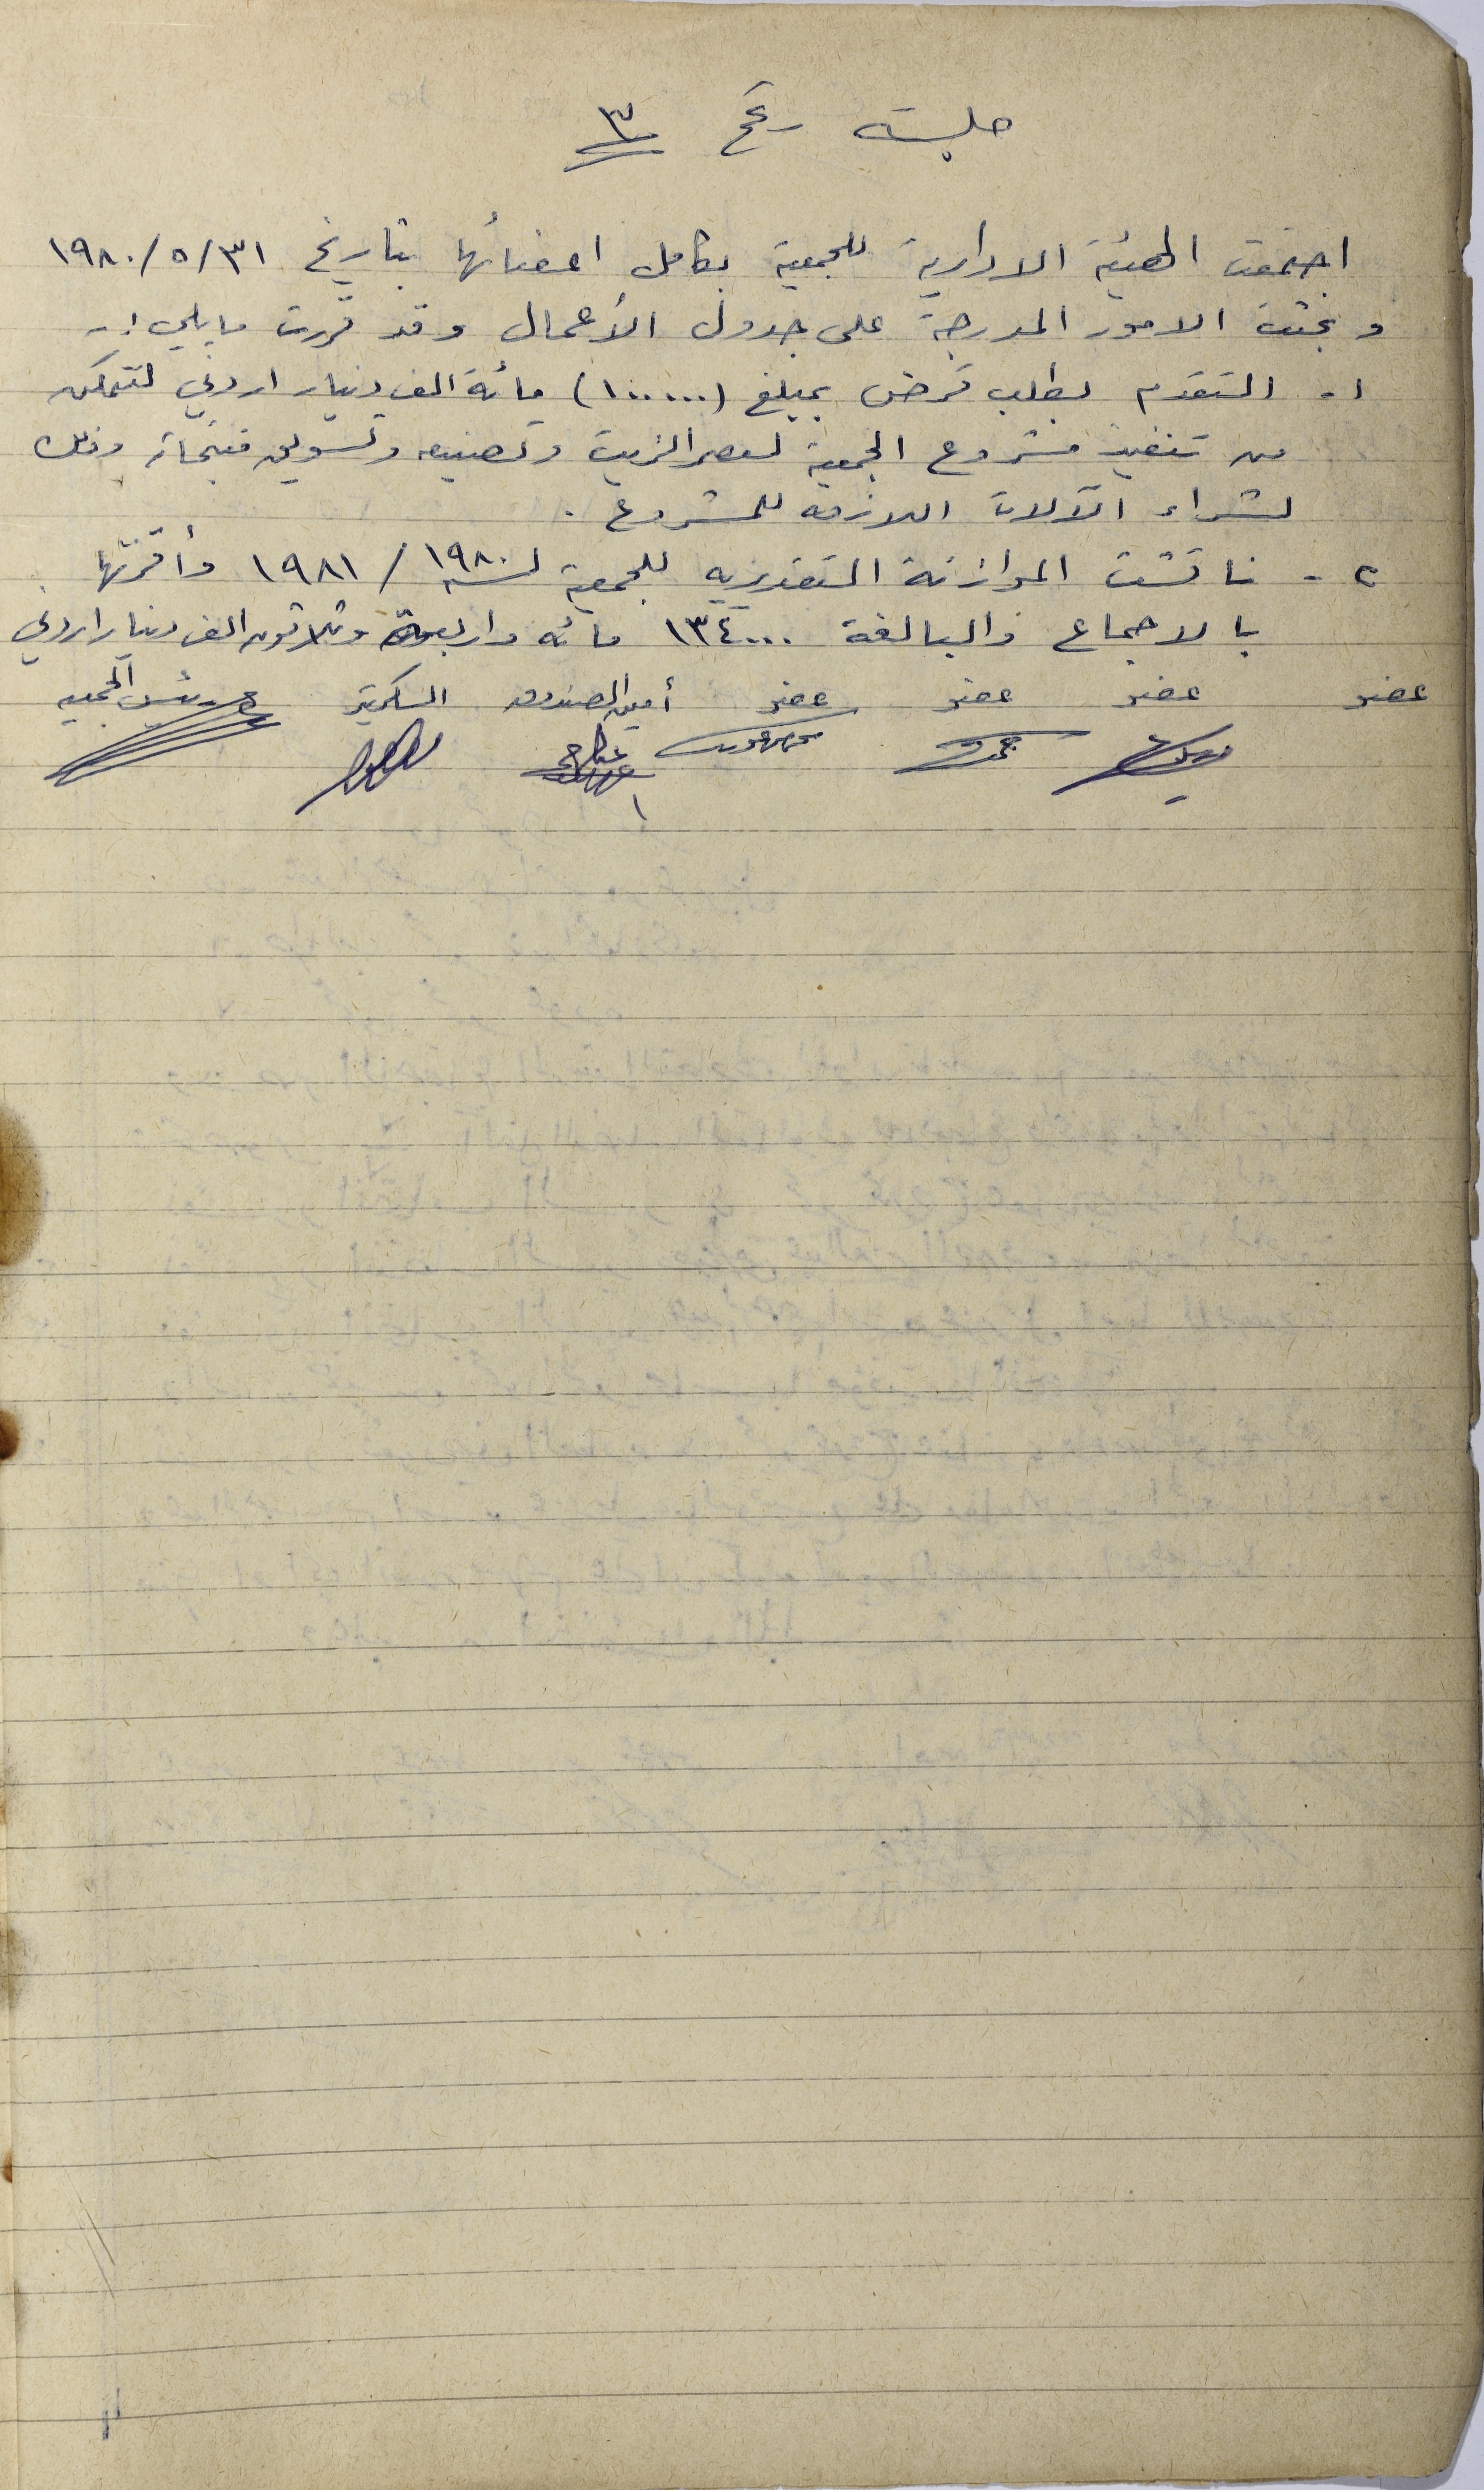 جلسة رقم ٣
اجتمعت الهيئة الادارية للجمعية بكامل اعضائها بتاريخ ٣١/٥/١٩٨٠
وبحثت الامور المدرجة على جدول الأعمال وقد قررت مايلي :-
١- التقدم بطلب قرض بمبلغ (١٠٠٠٠٠) مائة الف دينار اردني لتتمكن
من تنفيذ مشروع الجمعية لعصر الزيت وتصنيعه وتسويق منتجاته وذلك
لشراء الآلات اللازمه للمشروع .
٢- ناقشت الموازنة التقديريه للجمعية لسنه ١٩٨٠ / ١٩٨١ وأقرتها
بالاجماع والبالغة ١٣٤٠٠٠ مائه واربعة وثلاثون الف دينار اردني
عضو عضو عضو عضو أمين الصندوق السكرتير رئيس الجمعيه